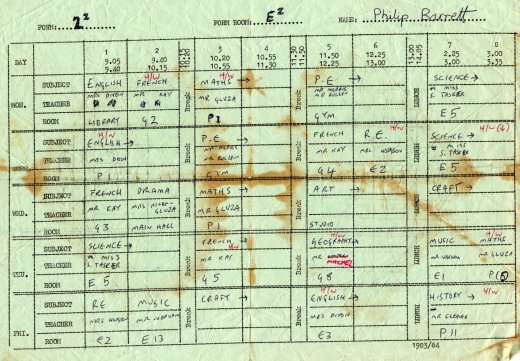 FORM: 2² FORM ROOM: E² NAME: Philip Barrett
1 2 3 4 5 6 7 8
DAY 9.05 9.40 9.40 10.15 10.15 10.20 10.20 10.55 10.55 11.30 11.30 11.50 11.50 12.25 12.25 13.00 13.00 14.05 2.25 3.00 3.00 3.35
H/W H/W
SUBJECT ENGLISH FRENCH MATHS → P.E → SCIENCE →
MON. TEACHER MRS DIXON MR KAY Break MR GLUZA Break LUNCH MISS S. TASKER
ROOM LIBRARY G2 P1 GYM E5
H/W H/W H/W (6)
SUBJECT ENGLISH → P.E → FRENCH R.E. SCIENCE →
TUES. TEACHER MRS DIXON Break Break MR KAY MRS HOPSON LUNCH MISS S. TASKER
ROOM P1 GYM G4 E2 E5
SUBJECT FRENCH DRAMA MATHS → ART → CRAFT →
WED. TEACHER MR KAY Break MR GLUZA Break LUNCH
ROOM G3 MAIN HALL P1 STUDIO
H/W H/W H/W
SUBJECT SCIENCE → FRENCH GEOGRAPHY → MUSIC MATHS
THU. TEACHER MISS S. TASKER Break MR KAY Break MR LUNCH MR GLUZA
ROOM E5 G5 G8 E1 P(5)
H/W H/W
SUBJECT RE MUSIC CRAFT → ENGLISH → HISTORY →
FRI. TEACHER Break Break MRS DIXON LUNCH
ROOM E2 E13 E3 P11
1983/84